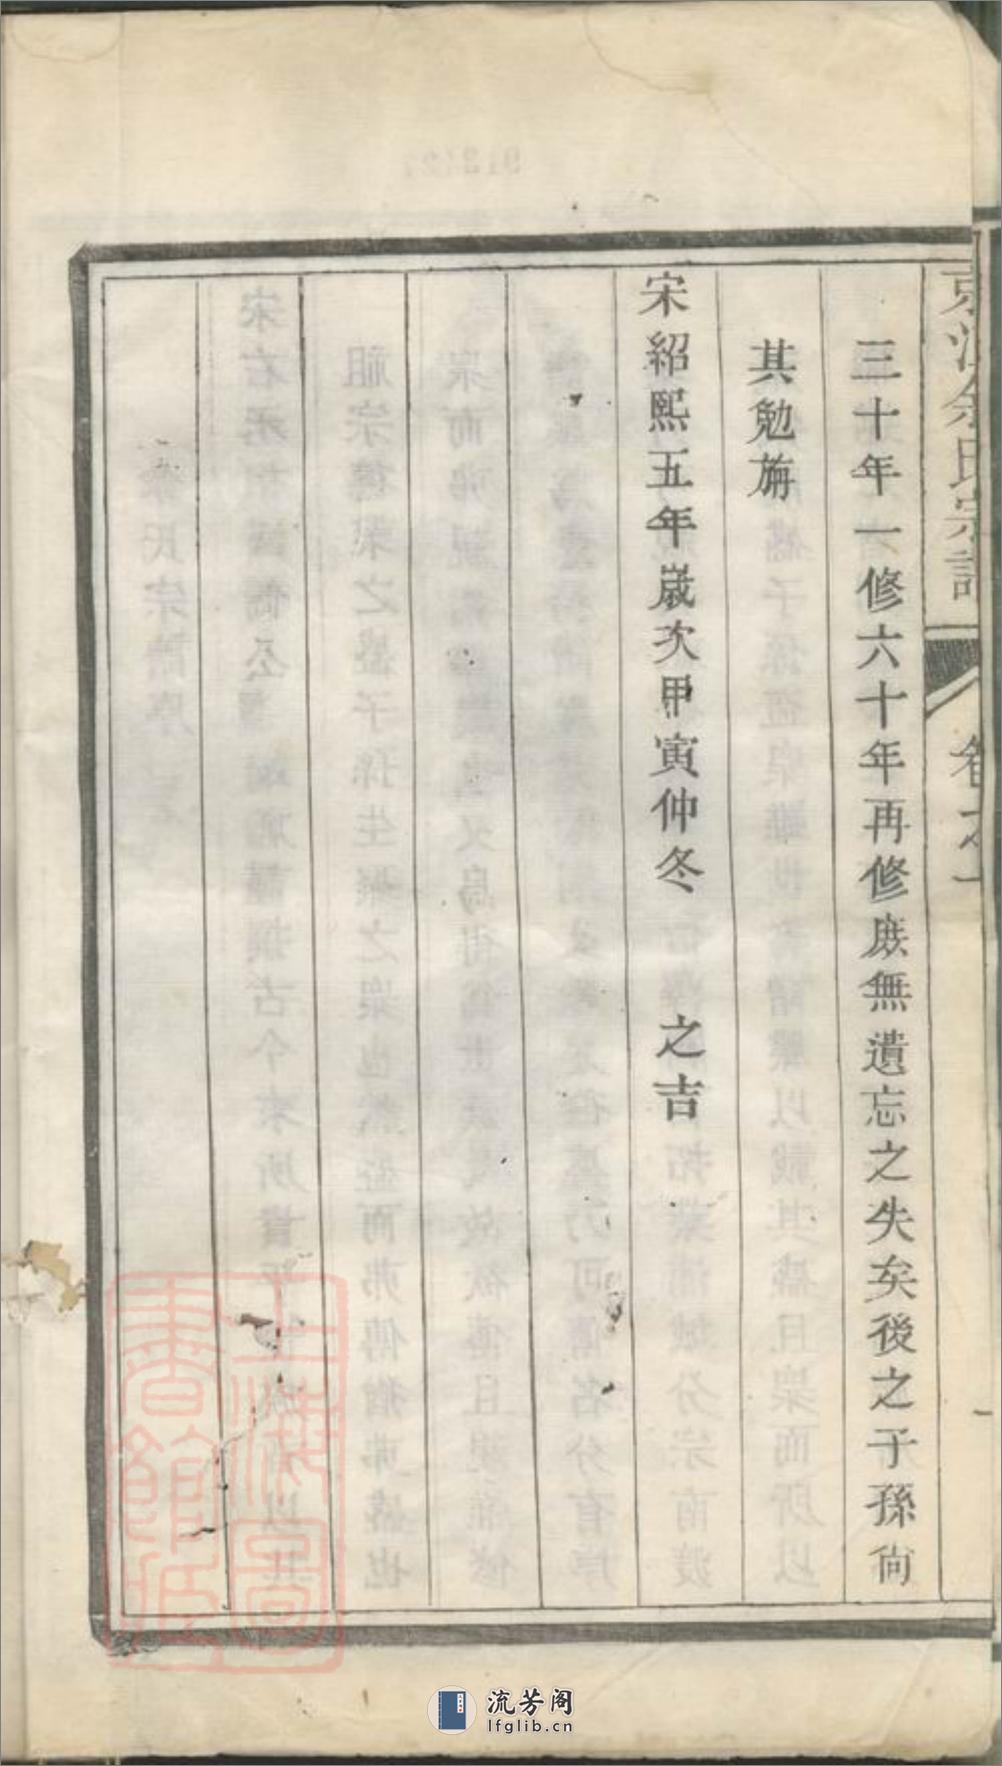 余氏宗譜
卷之一
三十年一修六十年再修庶無遺忘之失矣後之子孫尙
其勉旃
宋紹熙五年歲次甲寅仲冬　之吉
上海圖書館藏
流芳阁
lfglib.cn